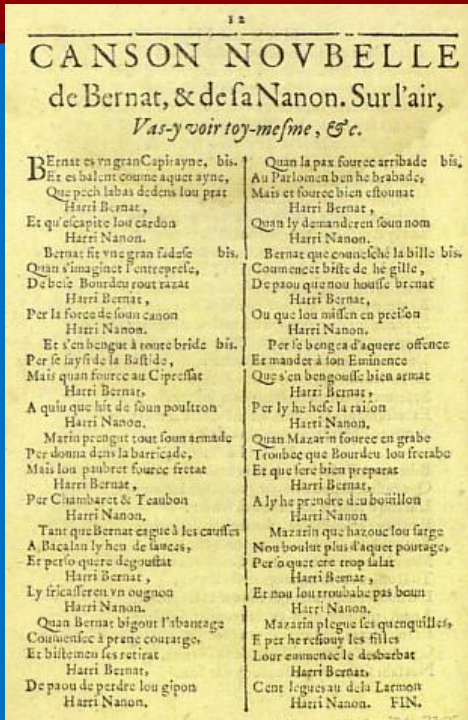 12
CANSON NOVBELLE
de Bernat, & de sa Nanon. Sur l'air,
Vas-y voir toy-mesme, &c.
BErnat es vn gran Capitayne, bis.
Et es balent coume aquet ayne,
Que pech labas dedens lou prat
Harri Bernat,
Et qu'escapite lou cardon
Harri Nanon.
Bernat fit vne gran fadese bis.
Quan s'imaginet l'entreprese,
De bese Bourdeu tout razat
Harri Bernat,
Per la force de soun canon
Harri Nanon.
Et s'en bengut à toute bride bis.
Per se saysi de la Bastide,
Mais quan fourec au Cipressat
Harri Bernat,
A quiu que hit de soun poultron
Harri Nanon.
Marin prengut tout soun armade
Per donna dens la barricade,
Mais lou paubret fourec fretat
Harri Bernat,
Per Chambaret & Teaubon
Harri Nanon.
Tant que Bernat cague à les causses
A Bacalan ly heu de sauces,
Et perso quere degoustat
Harri Bernat,
Ly fricasseren vn ougnon
Harri Nanon.
Quan Bernat bigout l'abantage
Coumensec à prene couratge,
Et bistemen ses retirat
Harri Bernat,
De paou de perdre lou gipon
Harri Nanon.
Quan la pax fourec arribade bis.
Au Parlomen ben he brabade,
Mais et fourec bien estounat
Harri Bernat,
Quan ly demanderen soun nom
Harri Nanon.
Bernat que counesché la bille bis.
Coumencet biste de hé gille,
De paou que nou housse brenat
Harri Bernat,
Ou que lou missen en preison
Harri Nanon.
Per se bengea d'aquere offence
Et mandet à son Eminence
Que s'en bengousse bien armat
Harri Bernat,
Per ly he hese la raison
Harri Nanon.
Quan Mazarin fourec en grabe
Troubec que Bourdeu lou fretabe
Et que sere bien preparat
Harri Bernat,
A ly he prendre deu boüillon
Harri Nanon
Mazarin que hazouc lou sarge
Nou boulut plus d'aquet poutage,
Per so quet ere trop salat
Harri Bernat,
Et nou lou troubabe pas boun
Harri Nanon.
Mazarin plegue ses quenquilles,
E per he resiouy les filles
Lour emmenec le desbarbat
Harri Bernat,
Cent legues au dela Larmon
Harri Nanon. FIN.